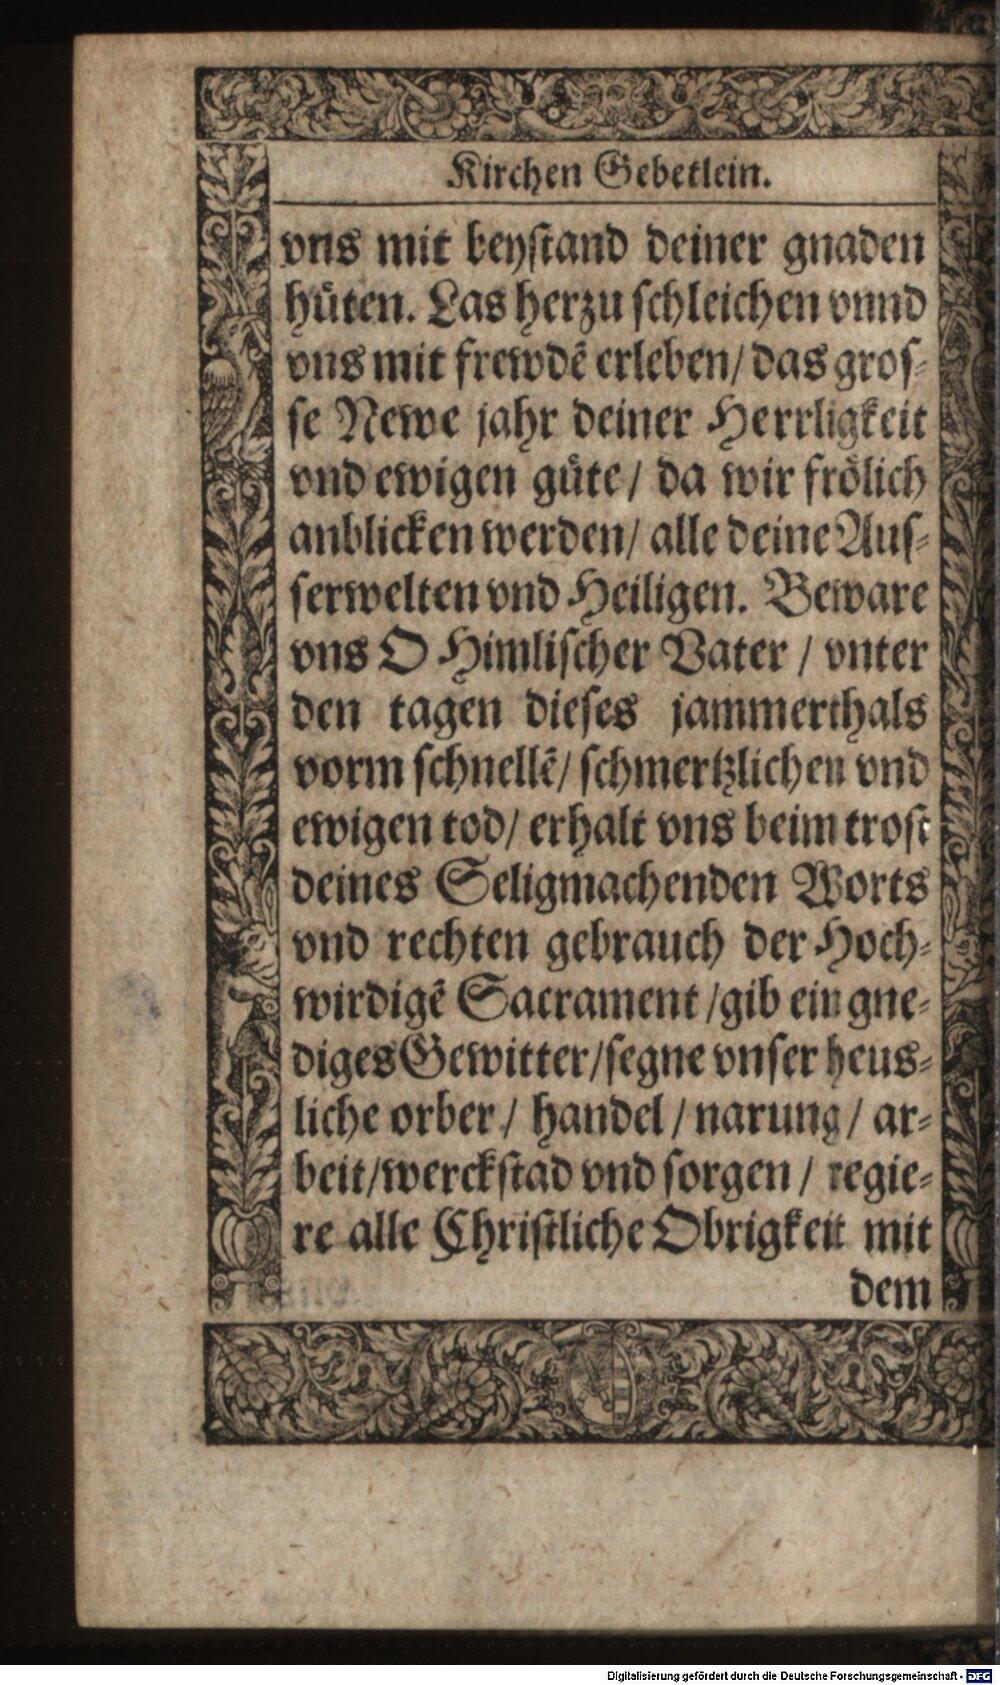 Kirchen Gebetlein.
vns mit beyſtand deiner gnaden
huͤten. Las herzu ſchleichen vnnd
vns mit frewdē erleben/ das groſ-
ſe Newe jahr deiner Herrligkeit
vnd ewigen guͤte/ da wir froͤlich
anblicken werden/ alle deine Auſ-
ſerwelten vnd Heiligen. Beware
vns O Himliſcher Vater / vnter
den tagen dieſes jammerthals
vorm ſchnellē/ ſchmertzlichen vnd
ewigen tod/ erhalt vns beim troſt
deines Seligmachenden Worts
vnd rechten gebrauch der Hoch-
wirdigē Sacrament /gib ein gne-
diges Gewitter/ſegne vnſer heus-
liche orber/ handel / narung/ ar-
beit/werckſtad vnd ſorgen / regie-
re alle Chriſtliche Obrigkeit mit
dem
Digitalisierung gefördert durch die Deutsche Forschungsgemeinschaft - DFG